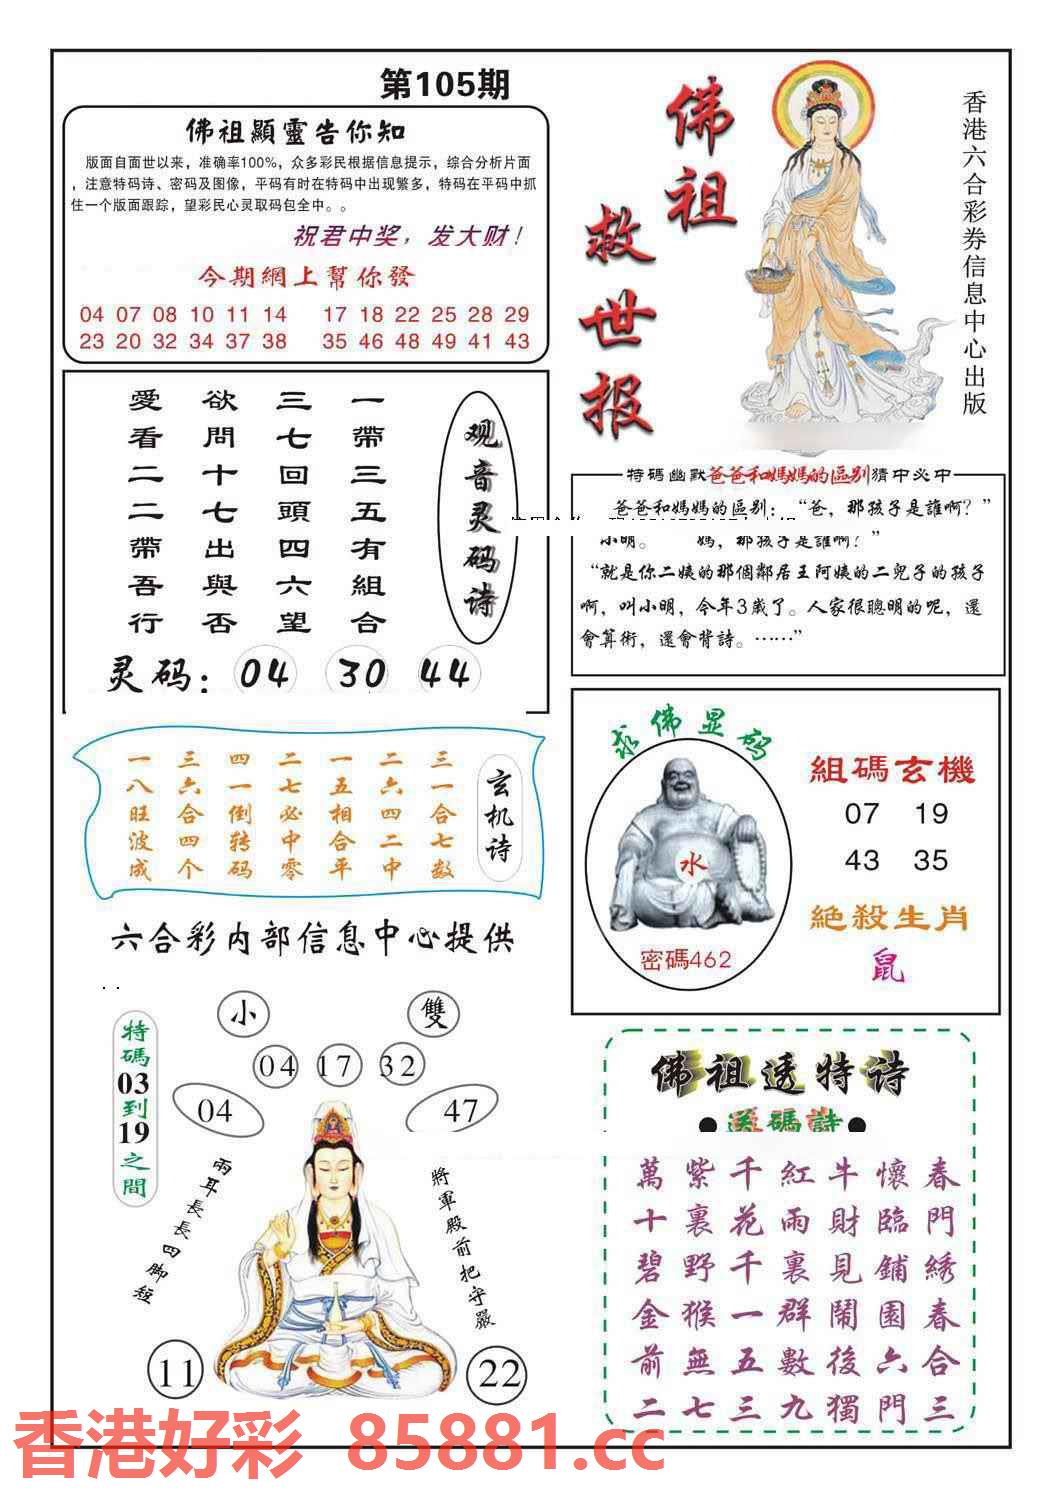 第105期
佛祖顯靈告你知
版面自面世以来，准确率100%，众多彩民根据信息提示，综合分析片面
，注意特码诗、密码及图像，平码有时在特码中出现繁多，特码在平码中抓
住一个版面跟踪，望彩民心灵取码包全中。。
祝君中奖，发大财！
今期網上幫你發
04 07 08 10 11 14 17 18 22 25 28 29
23 20 32 34 37 38 35 46 48 49 41 43
佛祖
救世报
香港六合彩券信息中心出版
观音灵码诗
一帶三五有組合
三七回頭四六望
欲問十七出與否
愛看二二帶吾行
灵码：04 30 44
特碼幽默爸爸和媽媽的區别猜中必中
爸爸和媽媽的區别：“爸，那孩子是誰啊？”
小明。 媽，那孩子是誰啊！”
“就是你二姨的那個鄰居王阿姨的二兒子的孩子
啊，叫小明，今年3歲了。人家很聰明的呢，還
會算術，還會背詩。……”
玄机诗
三一合七数
二六四二中
一五相合平
二七必中零
四一倒转码
三六合四个
一八旺波成
求佛显码
水
密碼462
組碼玄機
07 19
43 35
絕殺生肖
鼠
六合彩内部信息中心提供
特碼03到19之間
小
雙
04 17 32
04
47
兩耳長長四脚短
將軍殿前把守嚴
11
22
佛祖透特诗
●送碼詩●
春門綉春合三
懷臨鋪園六門
牛財見鬧後獨
紅雨裏群數九
千花千一五三
紫裏野猴無七
萬十碧金前二
香港好彩 85881.cc